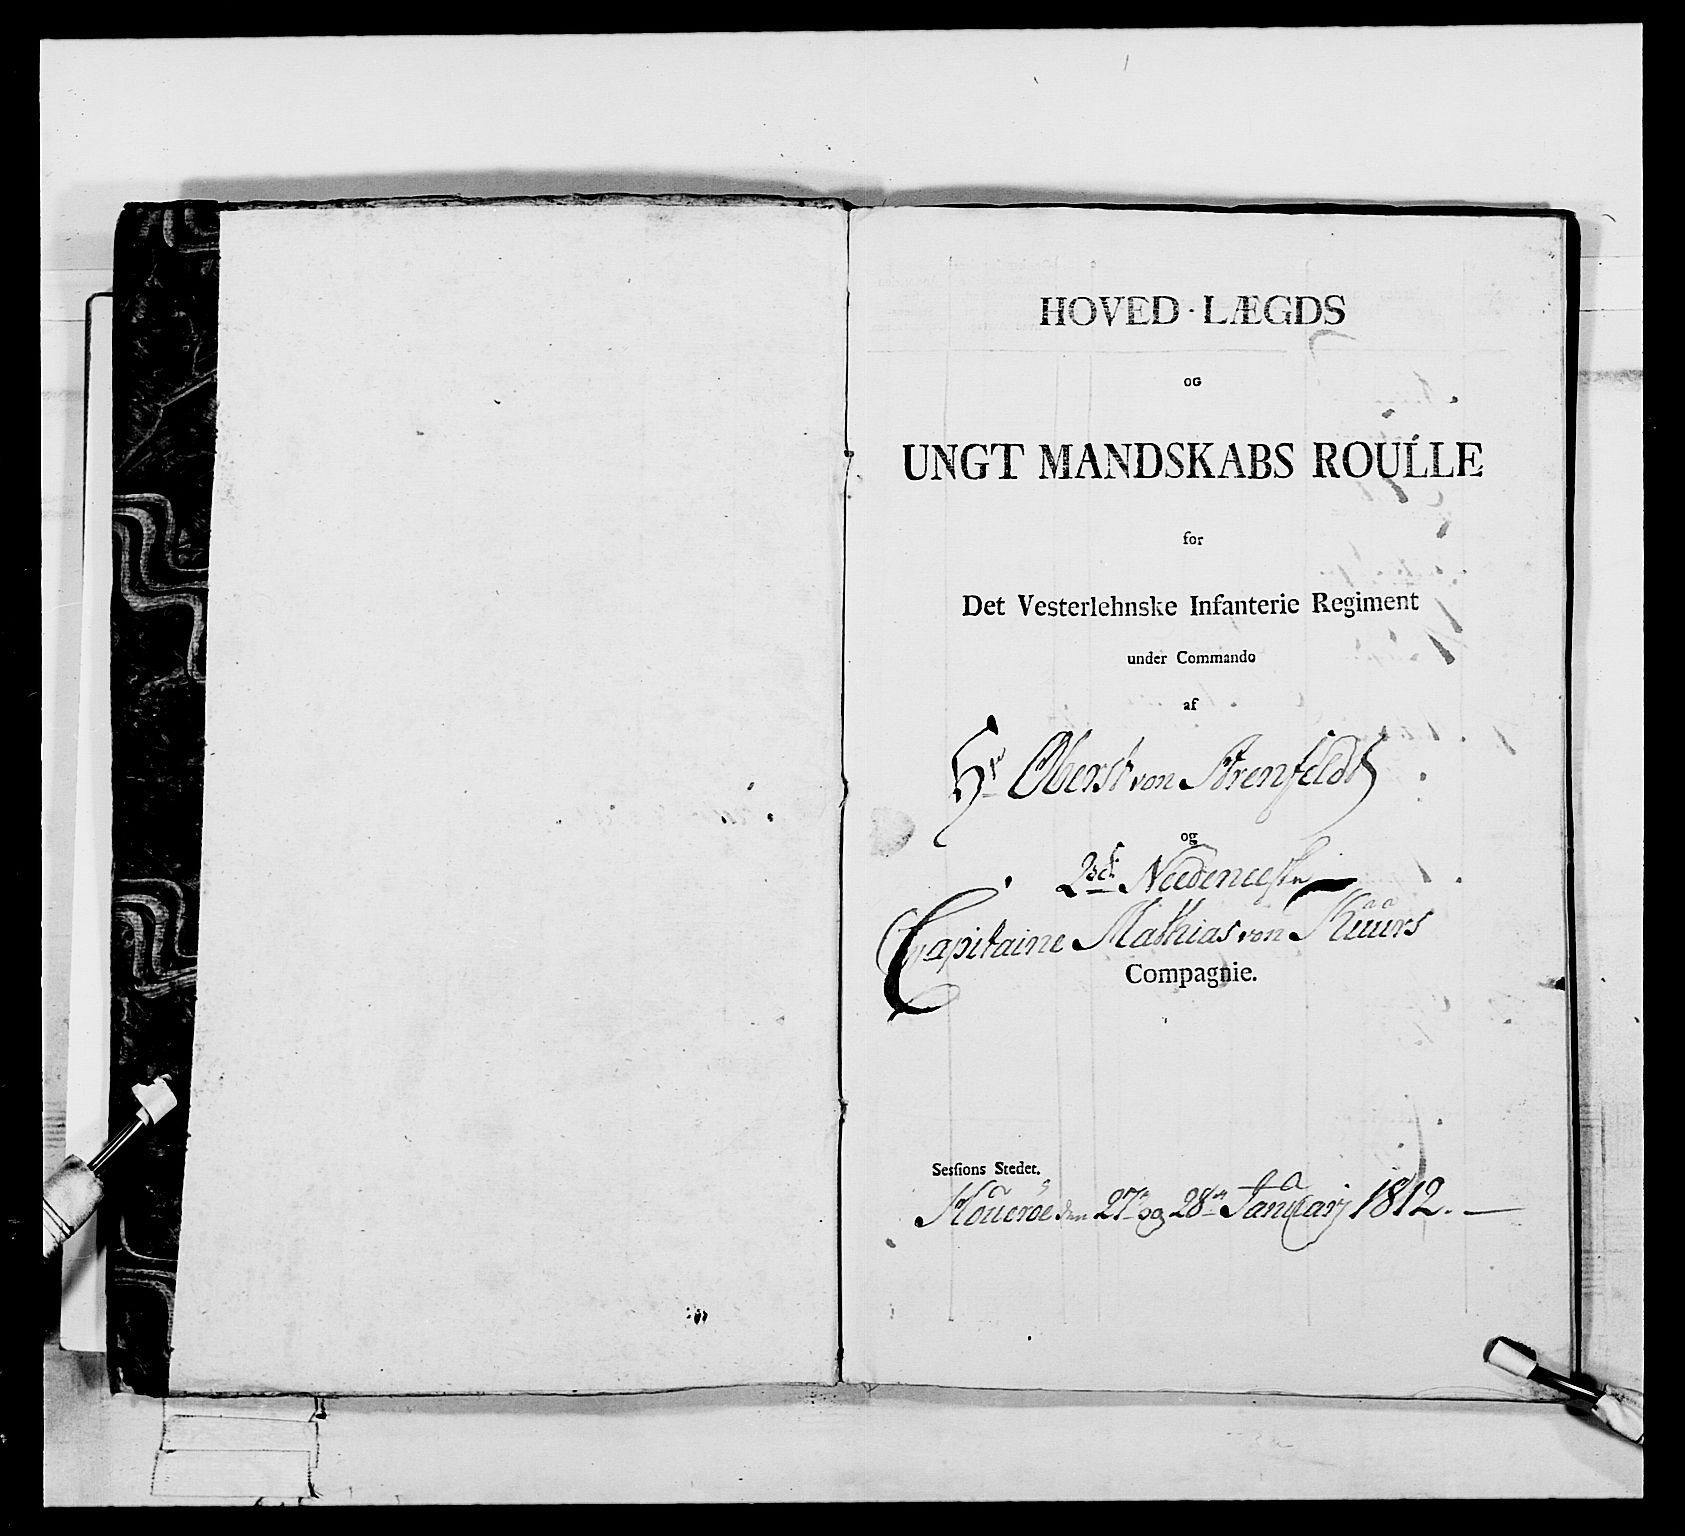 HOVED-LÆGDS
OG
UNGT MANDSKABS ROULLE
for
Det Vesterlehnske Infanterie Regiment
under Commando
af
Hr Oberst von Arenfeldt
og
2det Nedeneeske
Capitaine Mathias von Küürs
Compagnie.
Sessions Stedet.
den 27de og 28de Januarij 1812.